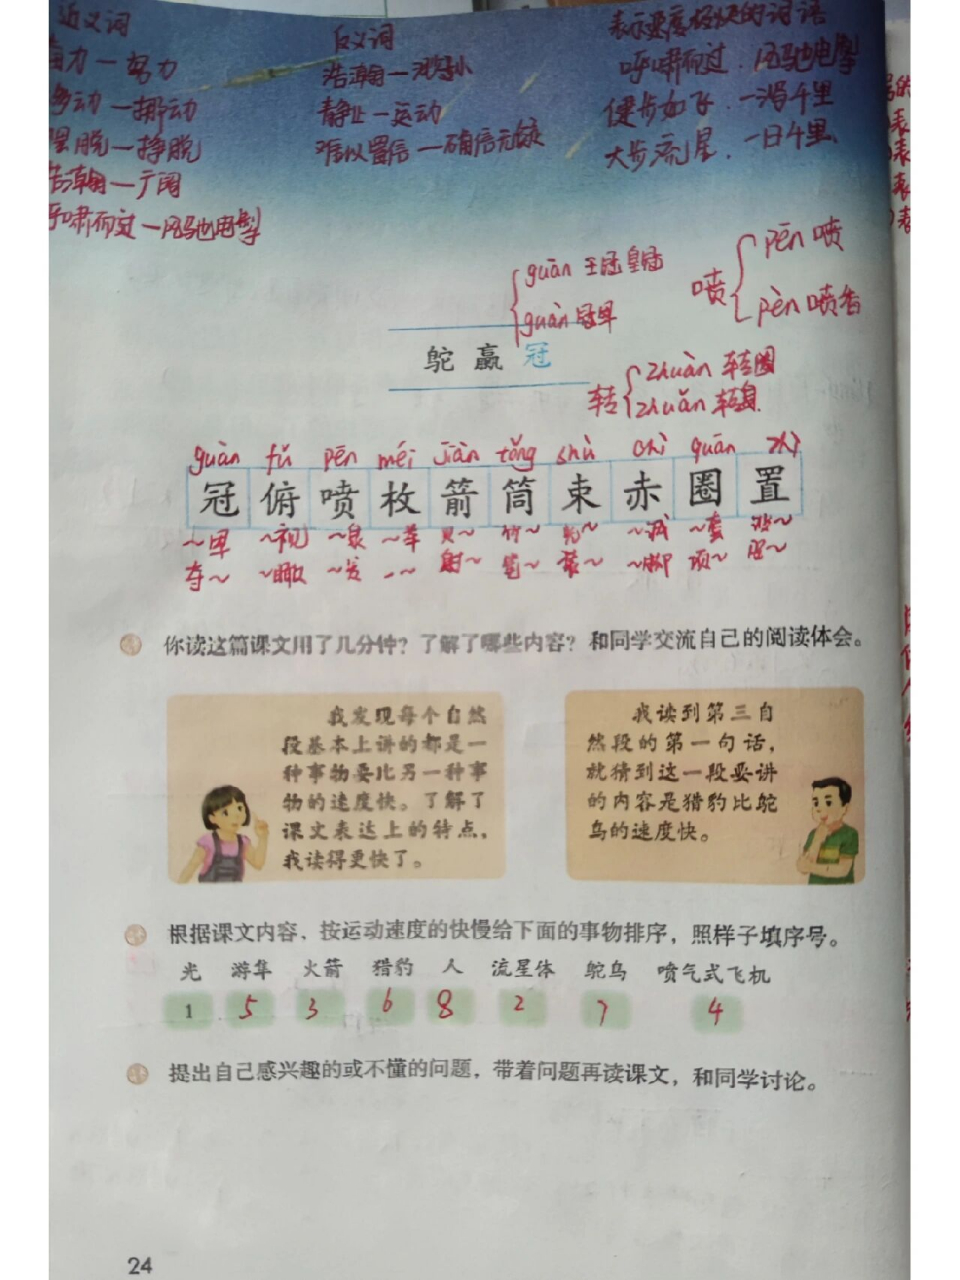 近义词
力一努力
动一挪动
脱一挣脱
浩瀚一广阔
呼啸而过一风驰电掣
反义词
浩瀚一渺小
静止一运动
难以置信一确信无疑
表示速度极快的词语
呼啸而过.风驰电掣
健步如飞.一泻千里
大步流星.一日千里
guān 王冠皇冠
guàn 冠军
喷
pēn 喷
pèn 喷香
转
zhuàn 转圈
zhuǎn 转身
鸵 赢 冠
guàn fǔ pēn méi jiàn tǒng shù chì quān zhì
冠 俯 喷 枚 箭 筒 束 赤 圈 置
~军 ~视 ~泉 ~举 火~ 竹~ ~诚 ~套
夺~ ~瞰 ~发 一~ 射~ 笔~ 装~ ~脚 项~
你读这篇课文用了几分钟？了解了哪些内容？和同学交流自己的阅读体会。
我发现每个自然
段基本上讲的都是一
种事物要比另一种事
物的速度快。了解了
课文表达上的特点，
我读得更快了。
我读到第三自
然段的第一句话，
就猜到这一段要讲
的内容是猎豹比鸵
鸟的速度快。
根据课文内容，按运动速度的快慢给下面的事物排序，照样子填序号。
光 游隼 火箭 猎豹 人 流星体 鸵鸟 喷气式飞机
1 5 3 6 8 2 7 4
提出自己感兴趣的或不懂的问题，带着问题再读课文，和同学讨论。
24